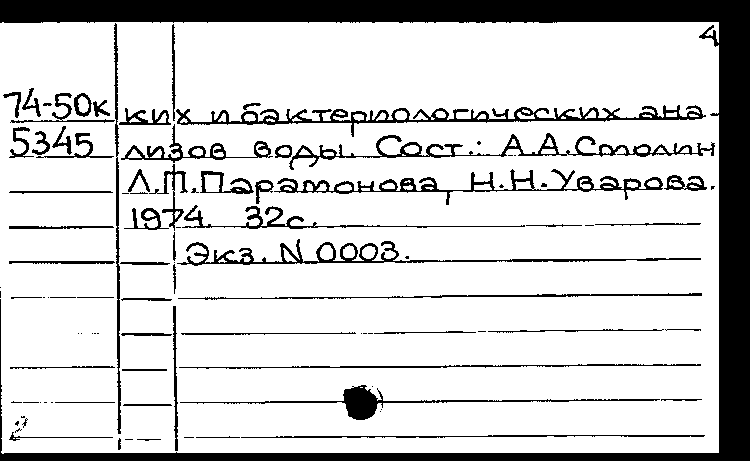 4
74-50к ких и бактериологических ана-
5345 лизов воды. Сост.: А.А.Столин
Л.П.Парамонова, Н.Н.Уварова.
1974. 32с.
Экз. N 0003.
2